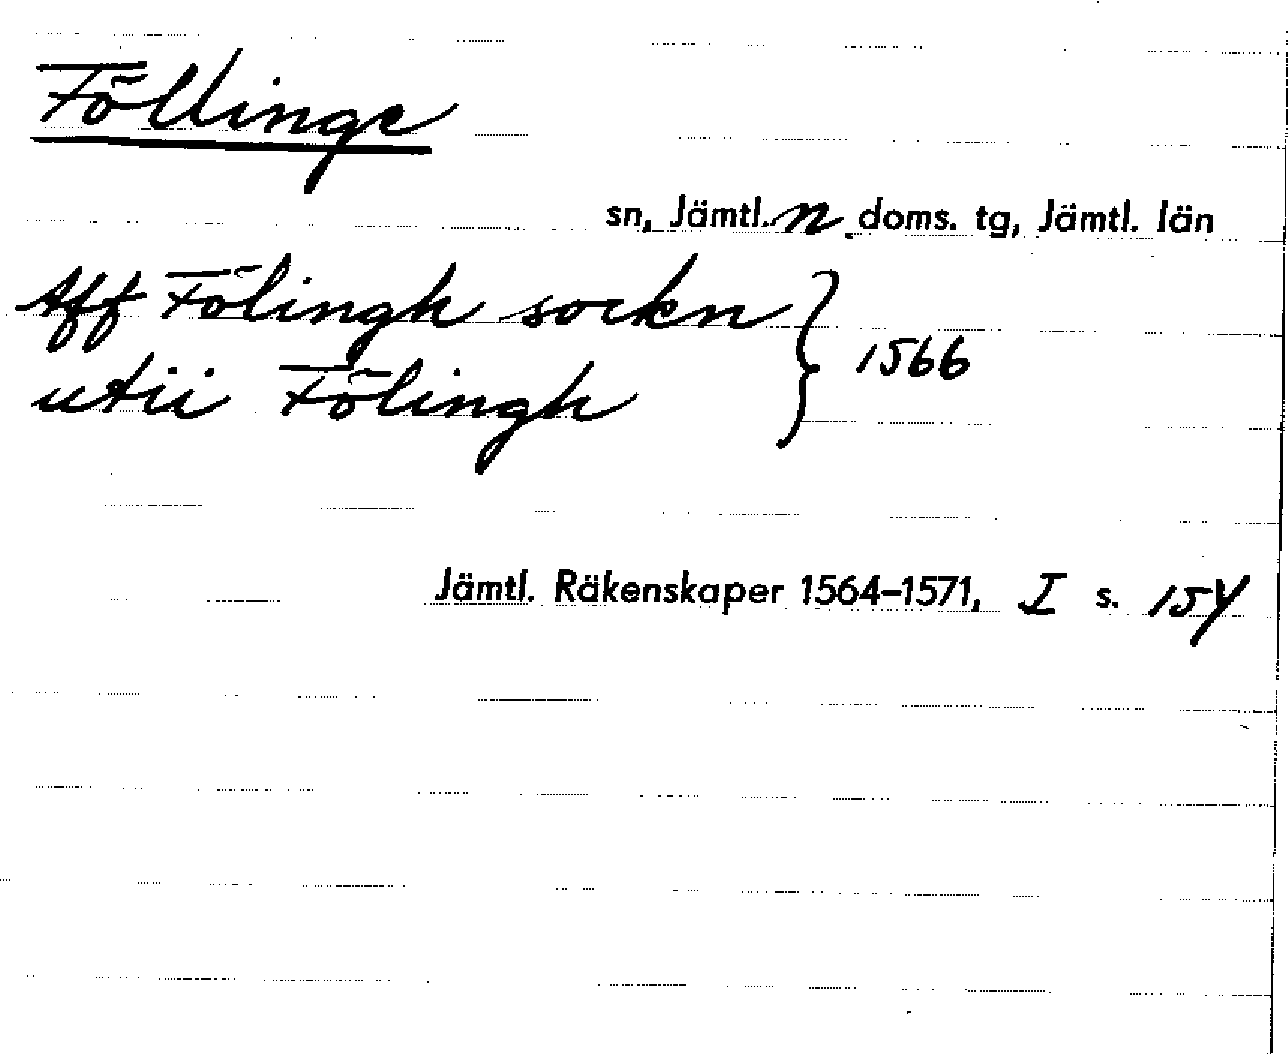 Föllinge
sn, Jämtl. n doms. tg, Jämtl. län
Aff Fölingh sockn } 1566
utii Fölingh
Jämtl. Räkenskaper 1564–1571, I s.